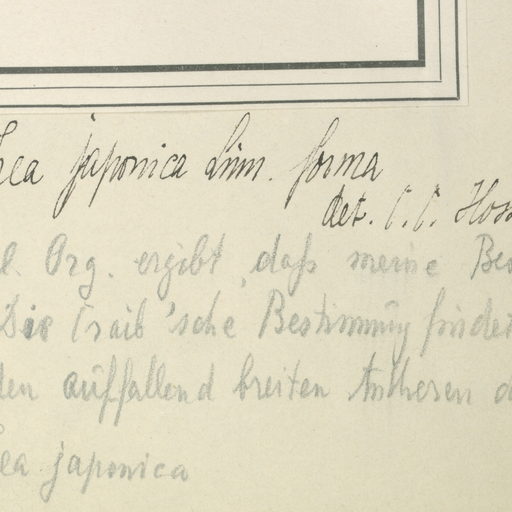 japonica Linn. forma
det. C. C. Hoss
Org. ergibt, daß meine Bes
Die Craib'sche Bestimmung findet
den auffallend breiten Antheren d
ea japonica